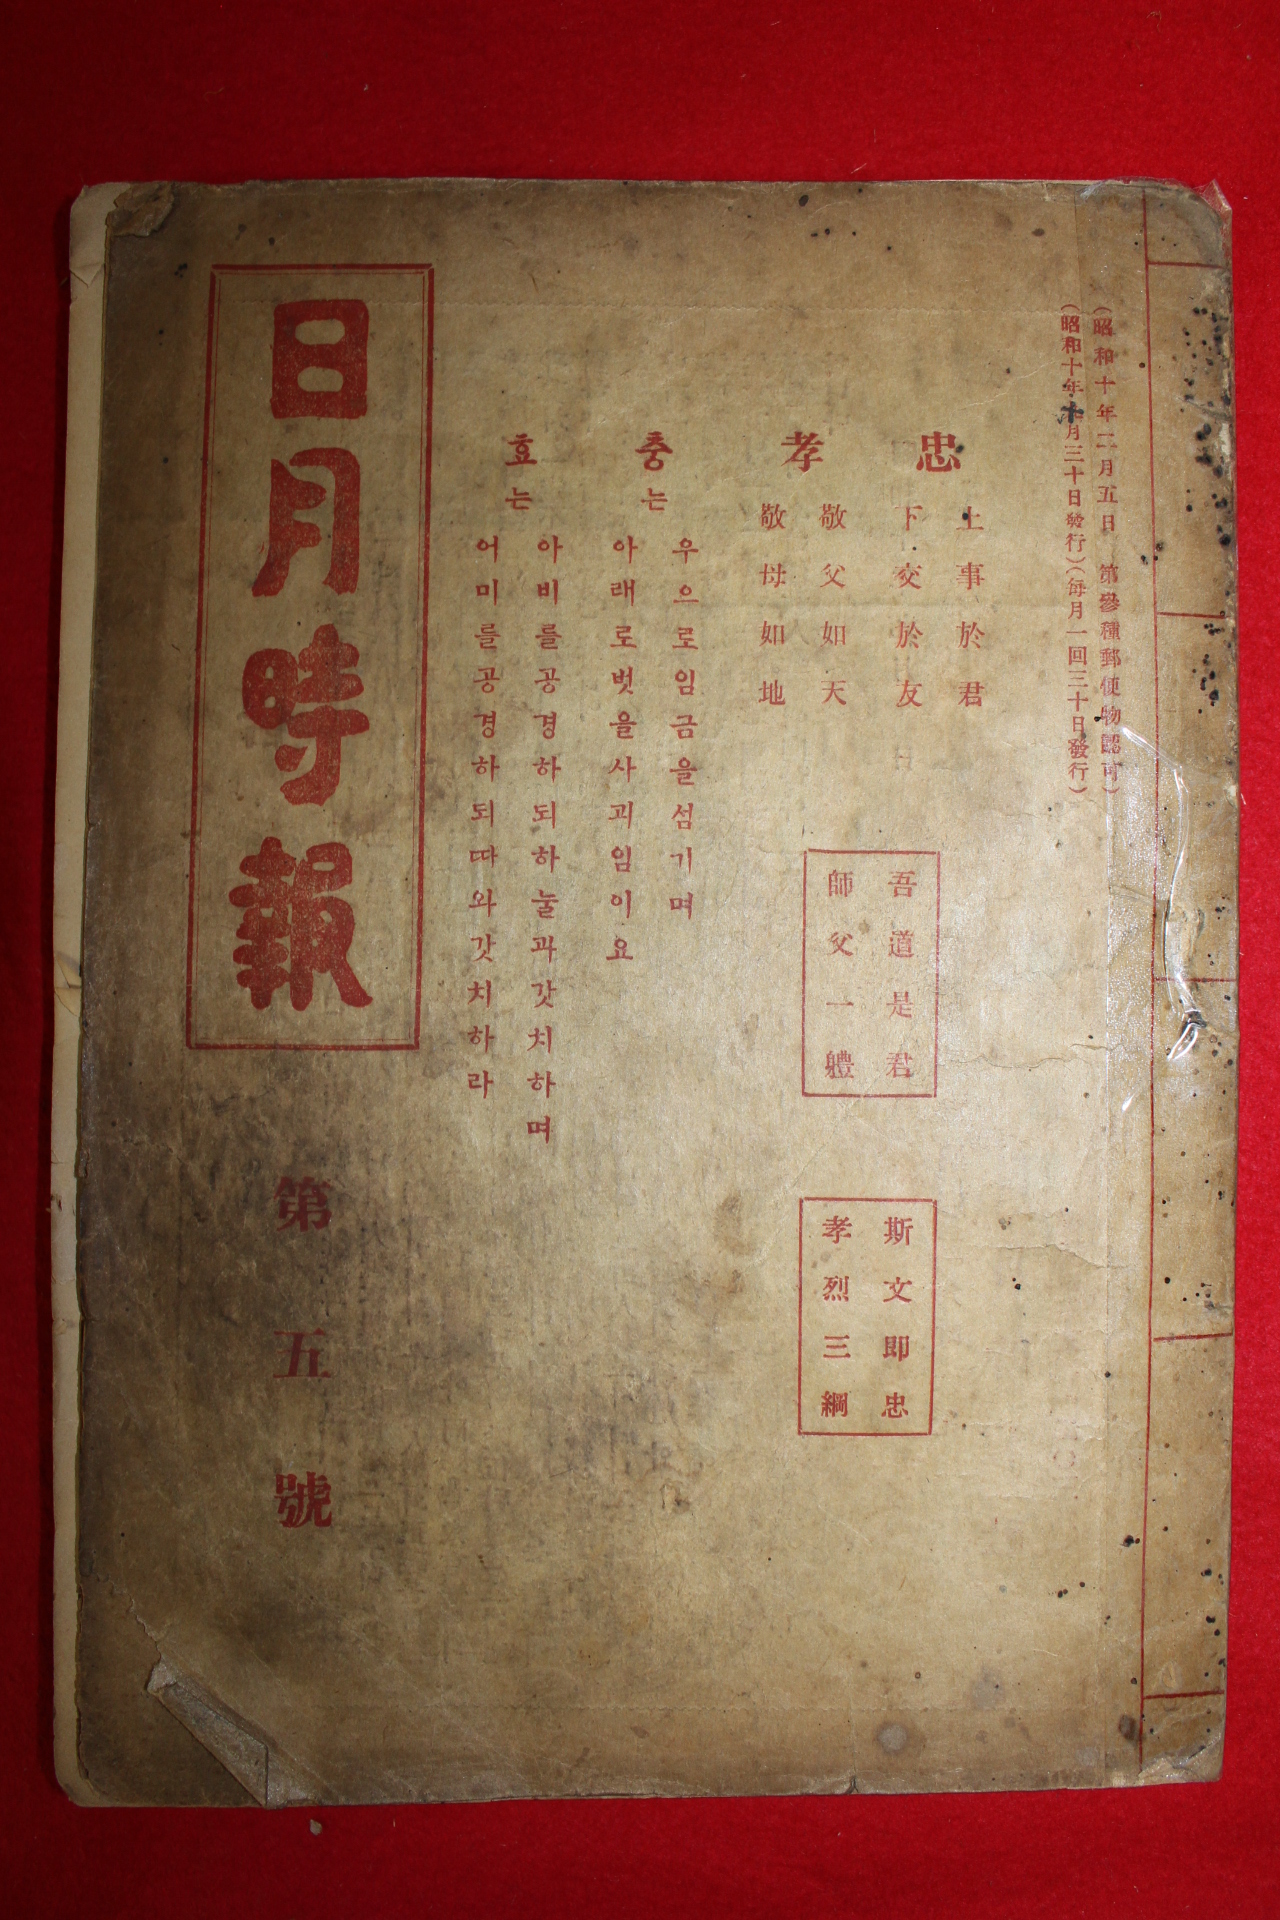 (昭和十年二月五日 第參種郵便物認可)
(昭和十年十月三十日發行)(每月一回三十日發行)
忠
上事於君
下交於友
孝
敬父如天
敬母如地
吾道是君
師父一體
斯文即忠
孝烈三綱
충는
우으로임금을섬기며
아래로벗을사괴임이요
효는
아비를공경하되하눌과갓치하며
어미를공경하되따와갓치하라
日月時報
第五號